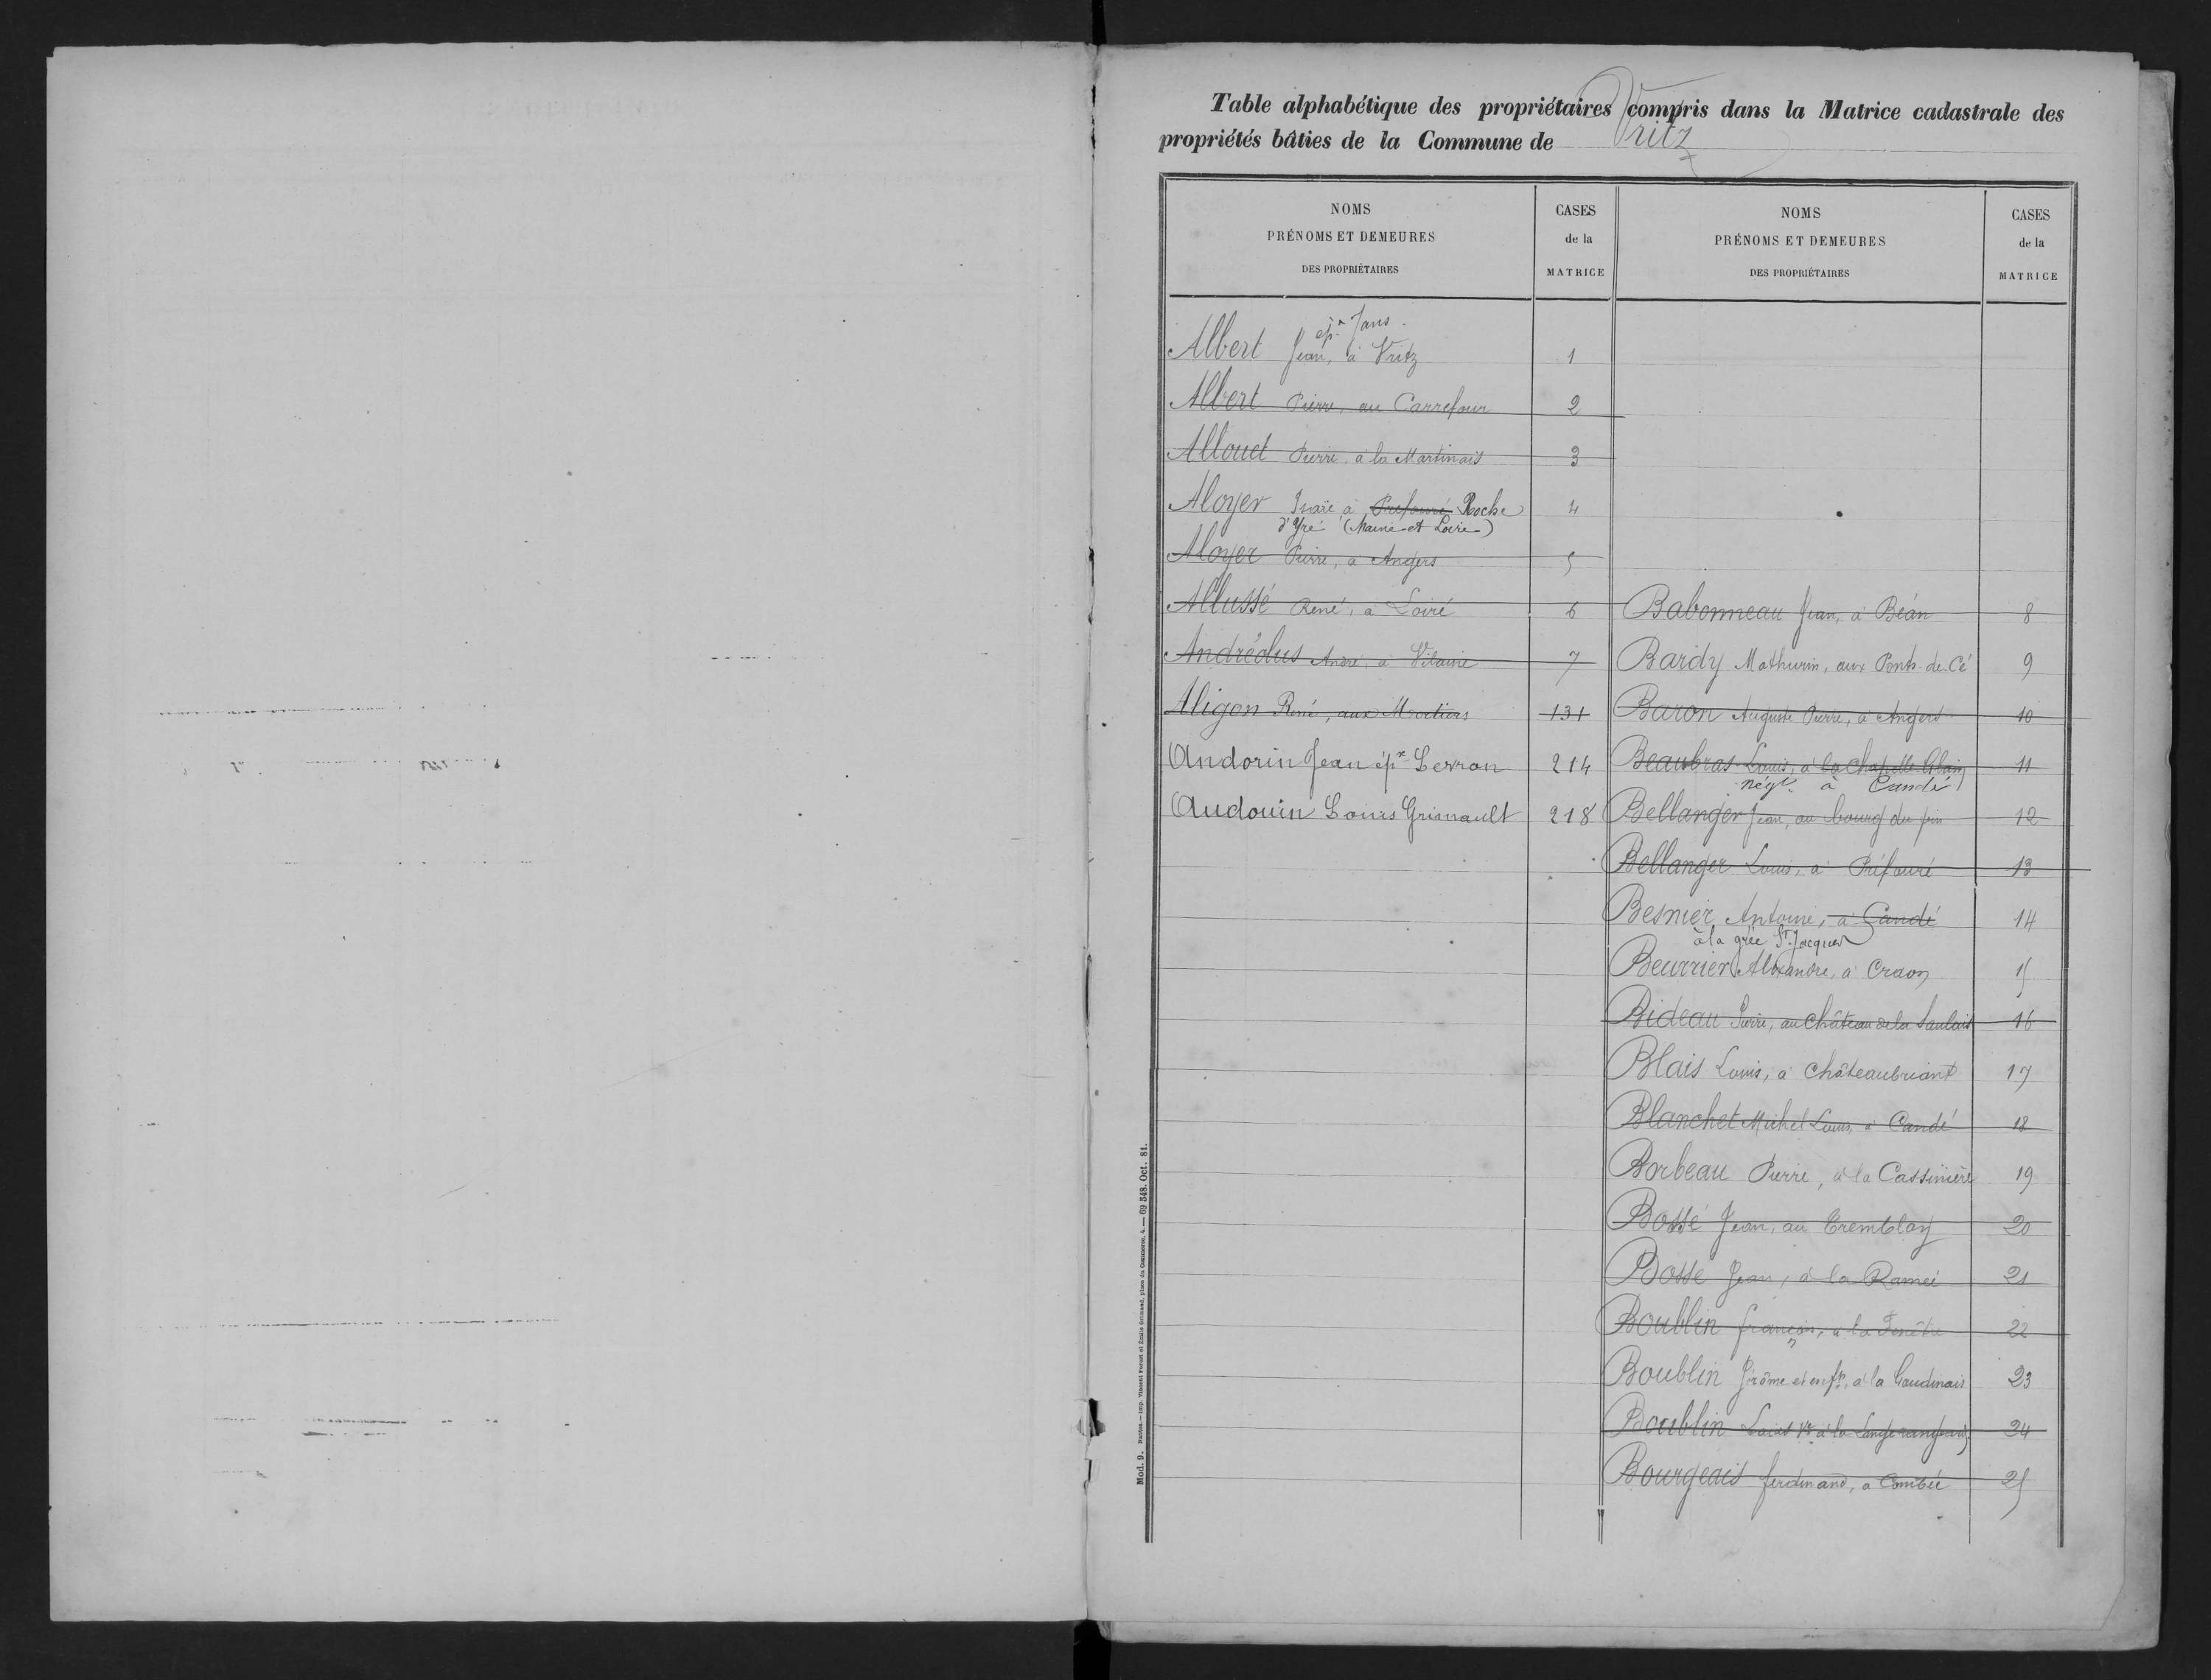 Table alphabétique des propriétaires compris dans la Matrice cadastrale des
propriétés bâties de la Commune de Vritz
NOMS
PRÉNOMS ET DEMEURES
DES PROPRIÉTAIRES
CASES
de la
MATRICE
ép. Jans
Albert Jean, à Vritz 1
Albert Pierre, au Carrefour 2
Allouet Pierre, à la Martinais 3
Aloyer Isaïe, à Préfouré Roche 4
d'Yré (Maine et Loire)
Aloyer Pierre, à Angers 5
Allussé René, à Loiré 6
Andréolus André, à Vilaine 7
Aligon René, aux Mortiers 131
Andorin Jean épx Lerron 214
Audouin Louis Grimault 218
NOMS
PRÉNOMS ET DEMEURES
DES PROPRIÉTAIRES
CASES
de la
MATRICE
Babonneau Jean, à Béan 8
Bardy Mathurin, aux Ponts-de-Cé 9
Baron Auguste Pierre, à Angers 10
Beaubras Louis, à la Chapelle Glain 11
négt à Candé
Bellanger Jean, au bourg du pin 12
Bellanger Louis, à Préfouré 13
Besnier Antoine, à Candé 14
à la grée St Jacques
Beurrier Alexandre, à Craon 15
Bideau Pierre, au château de la Saulais 16
Blais Louis, à Châteaubriant 17
Blanchet Michel Louis, à Candé 18
Borbeau Pierre, à la Cassinière 19
Bossé Jean, au Tremblay 20
Bosse Jean, à la Ramée 21
Boublin françois, à la Fenêtre 22
Boublin Jérôme et enfts, à la Gaudinais 23
Boublin Louis Ve à la 24
Bourgeais ferdinand, à Combrée 25
Mod. 9. Nantes. — Imp. Vincent Forest et Émile Grimaud, place du Commerce, 4. — 69 548. Oct. 81.